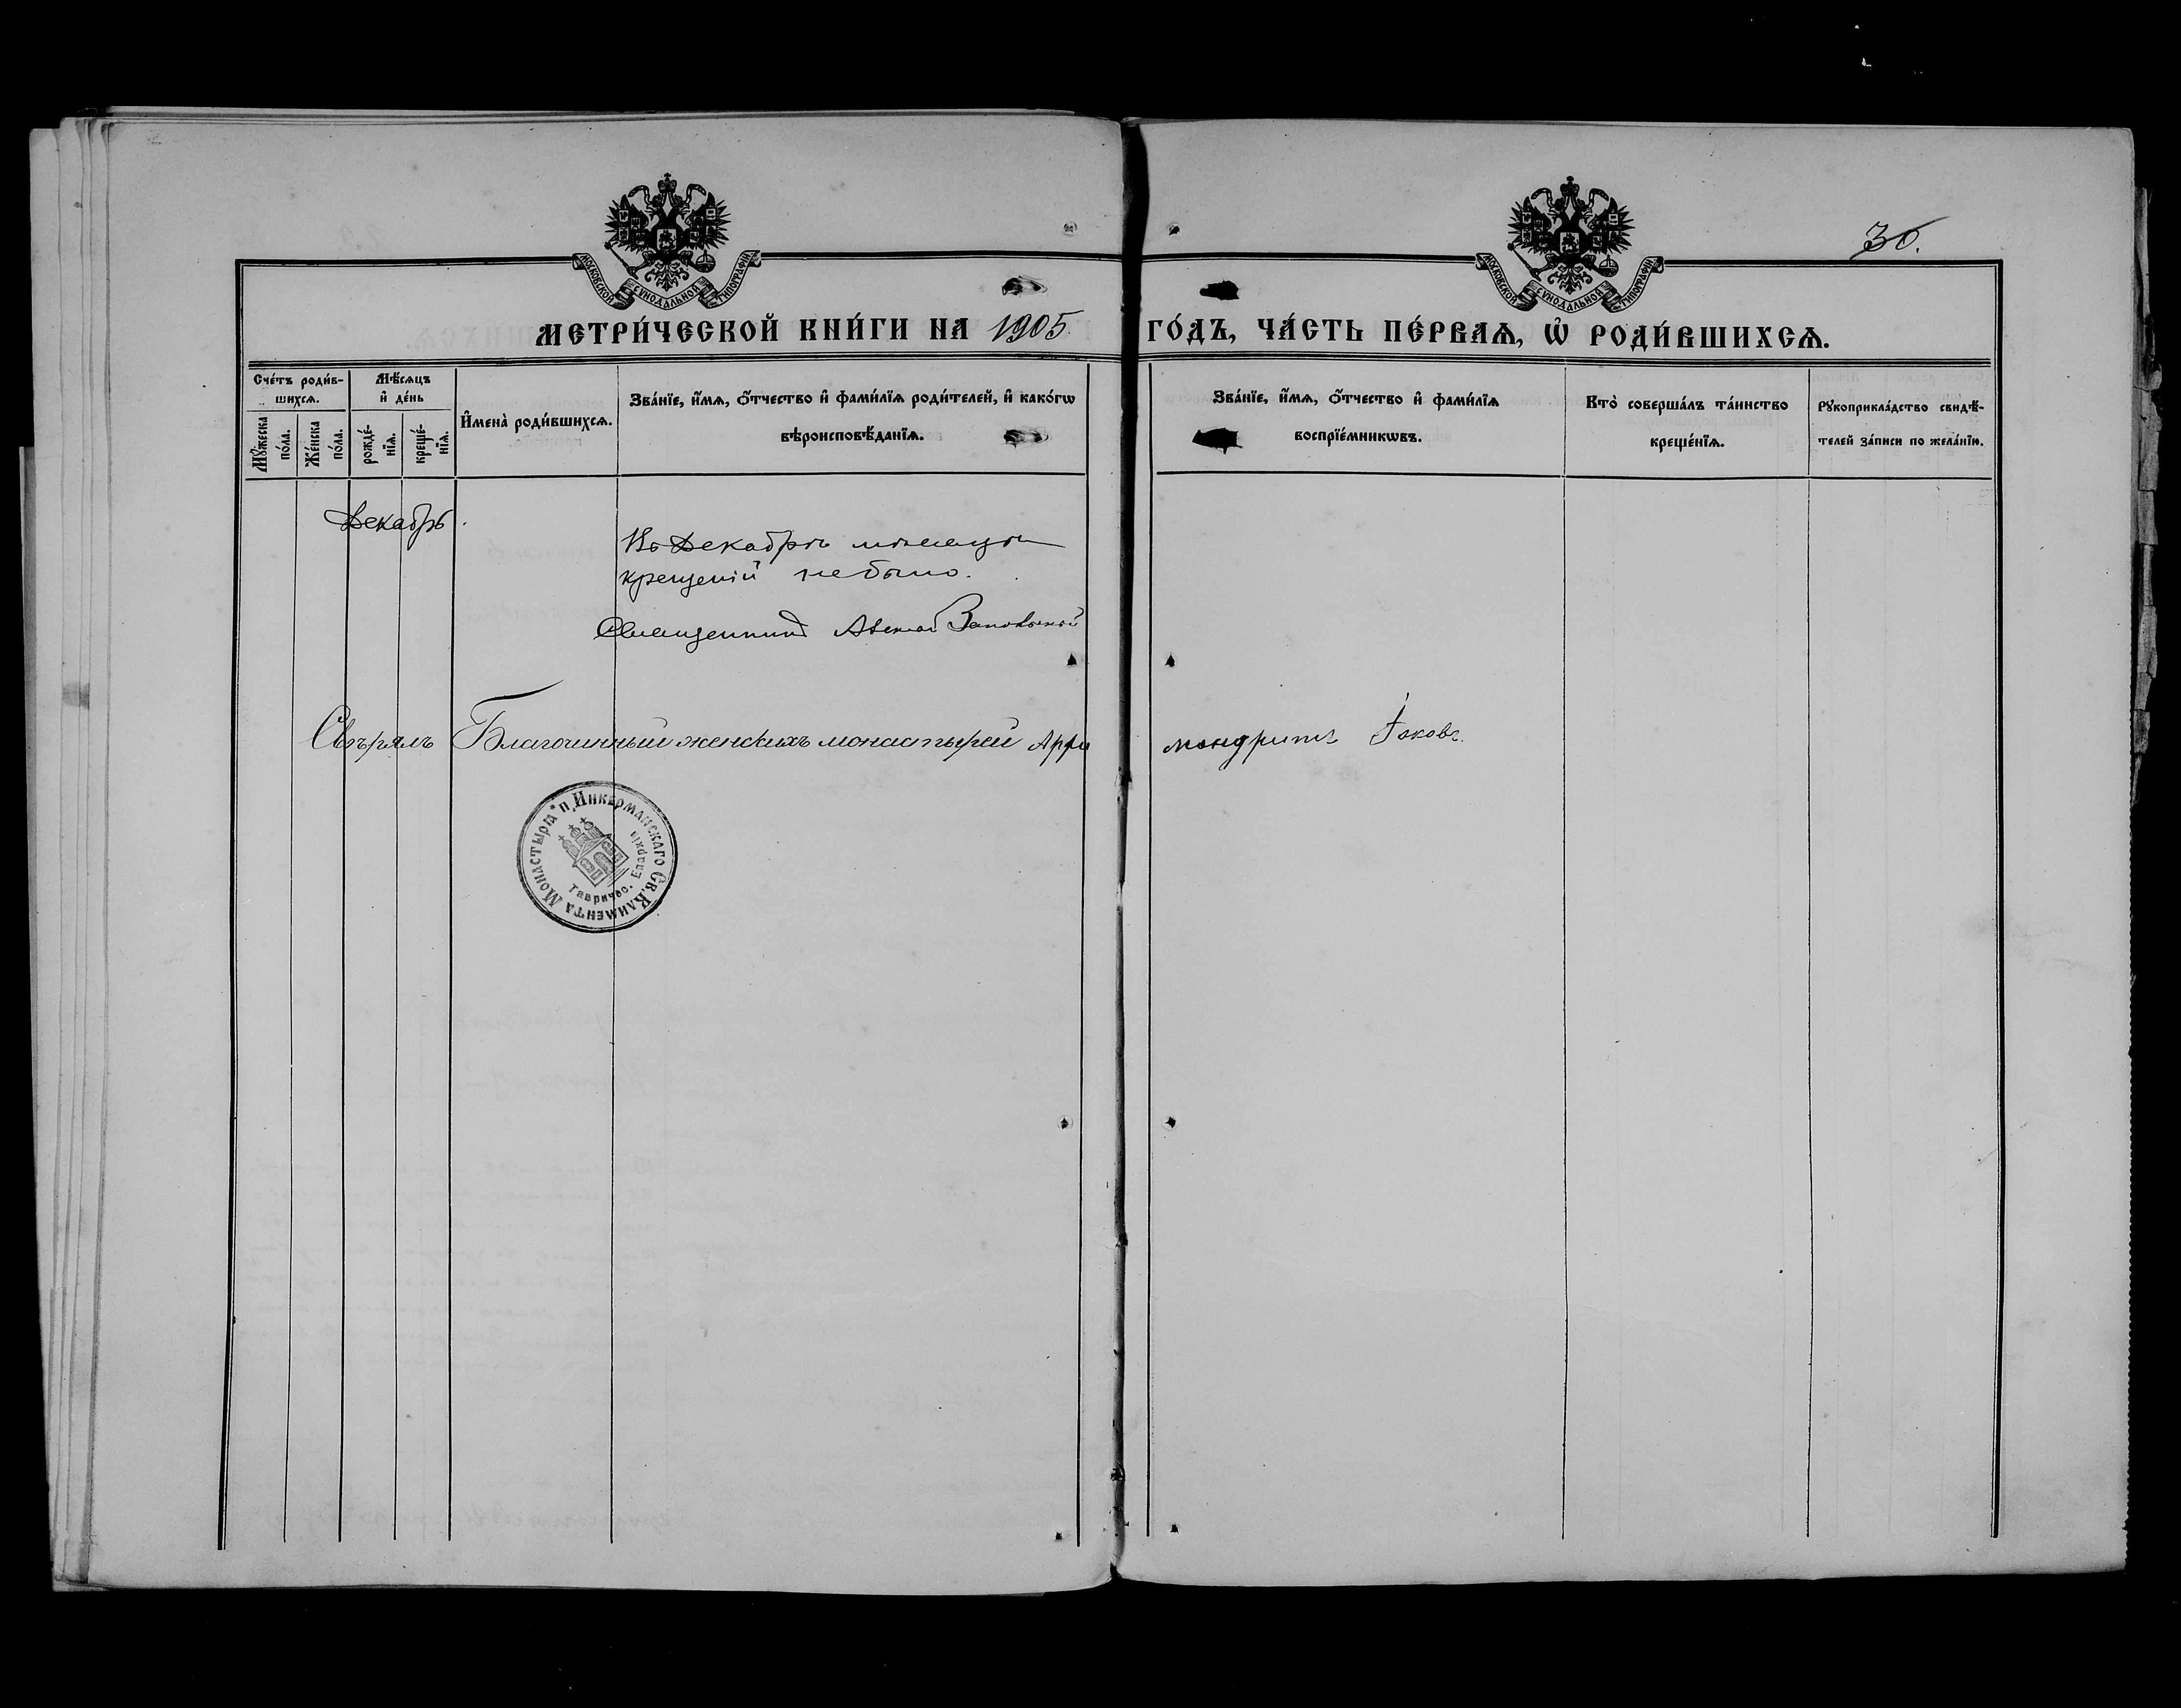 30.
МОСКОВСКОЙ СѴНОДАЛЬНОЙ ТИПОГРАФІИ
МОСКОВСКОЙ СѴНОДАЛЬНОЙ ТИПОГРАФІИ
МЕТРИ́ЧЕСКОЙ КНИ́ГИ НА 1905 ГО́ДЪ, ЧА́СТЬ ПЕ́РВАѦ, Ѡ҆ РОДИ́ВШИХСѦ.
Сче́тъ роди́в-
шихсѧ.
Мꙋ́жеска
по́ла.
Же́нска
по́ла.
Мѣ́сѧцъ
и҆ де́нь
рожде́-
нїѧ.
креще́-
нїѧ.
И҆мена̀ роди́вшихсѧ.
Зва́нїе, и҆́мѧ, ѻ҆́тчество и҆ фами́лїѧ роди́телей, и҆ како́гѡ
вѣроисповѣ́данїѧ.
Зва́нїе, и҆́мѧ, ѻ҆́тчество и҆ фами́лїѧ
воспрїе́мникѡвъ.
Кто̀ соверша́лъ та́инство
креще́нїѧ.
Рꙋкоприкла́дство свидѣ́-
телей за́писи по жела́нїю.
Декабрь.
Въ Декабрѣ мѣсяцѣ
крещеній не было.
Священникъ
Свѣрялъ Благочинный женскихъ монастырей Архи мандритъ Іаковъ.
Инкерманскаго Св. Климента Монастыря * п.
Тавричес. Епархіи